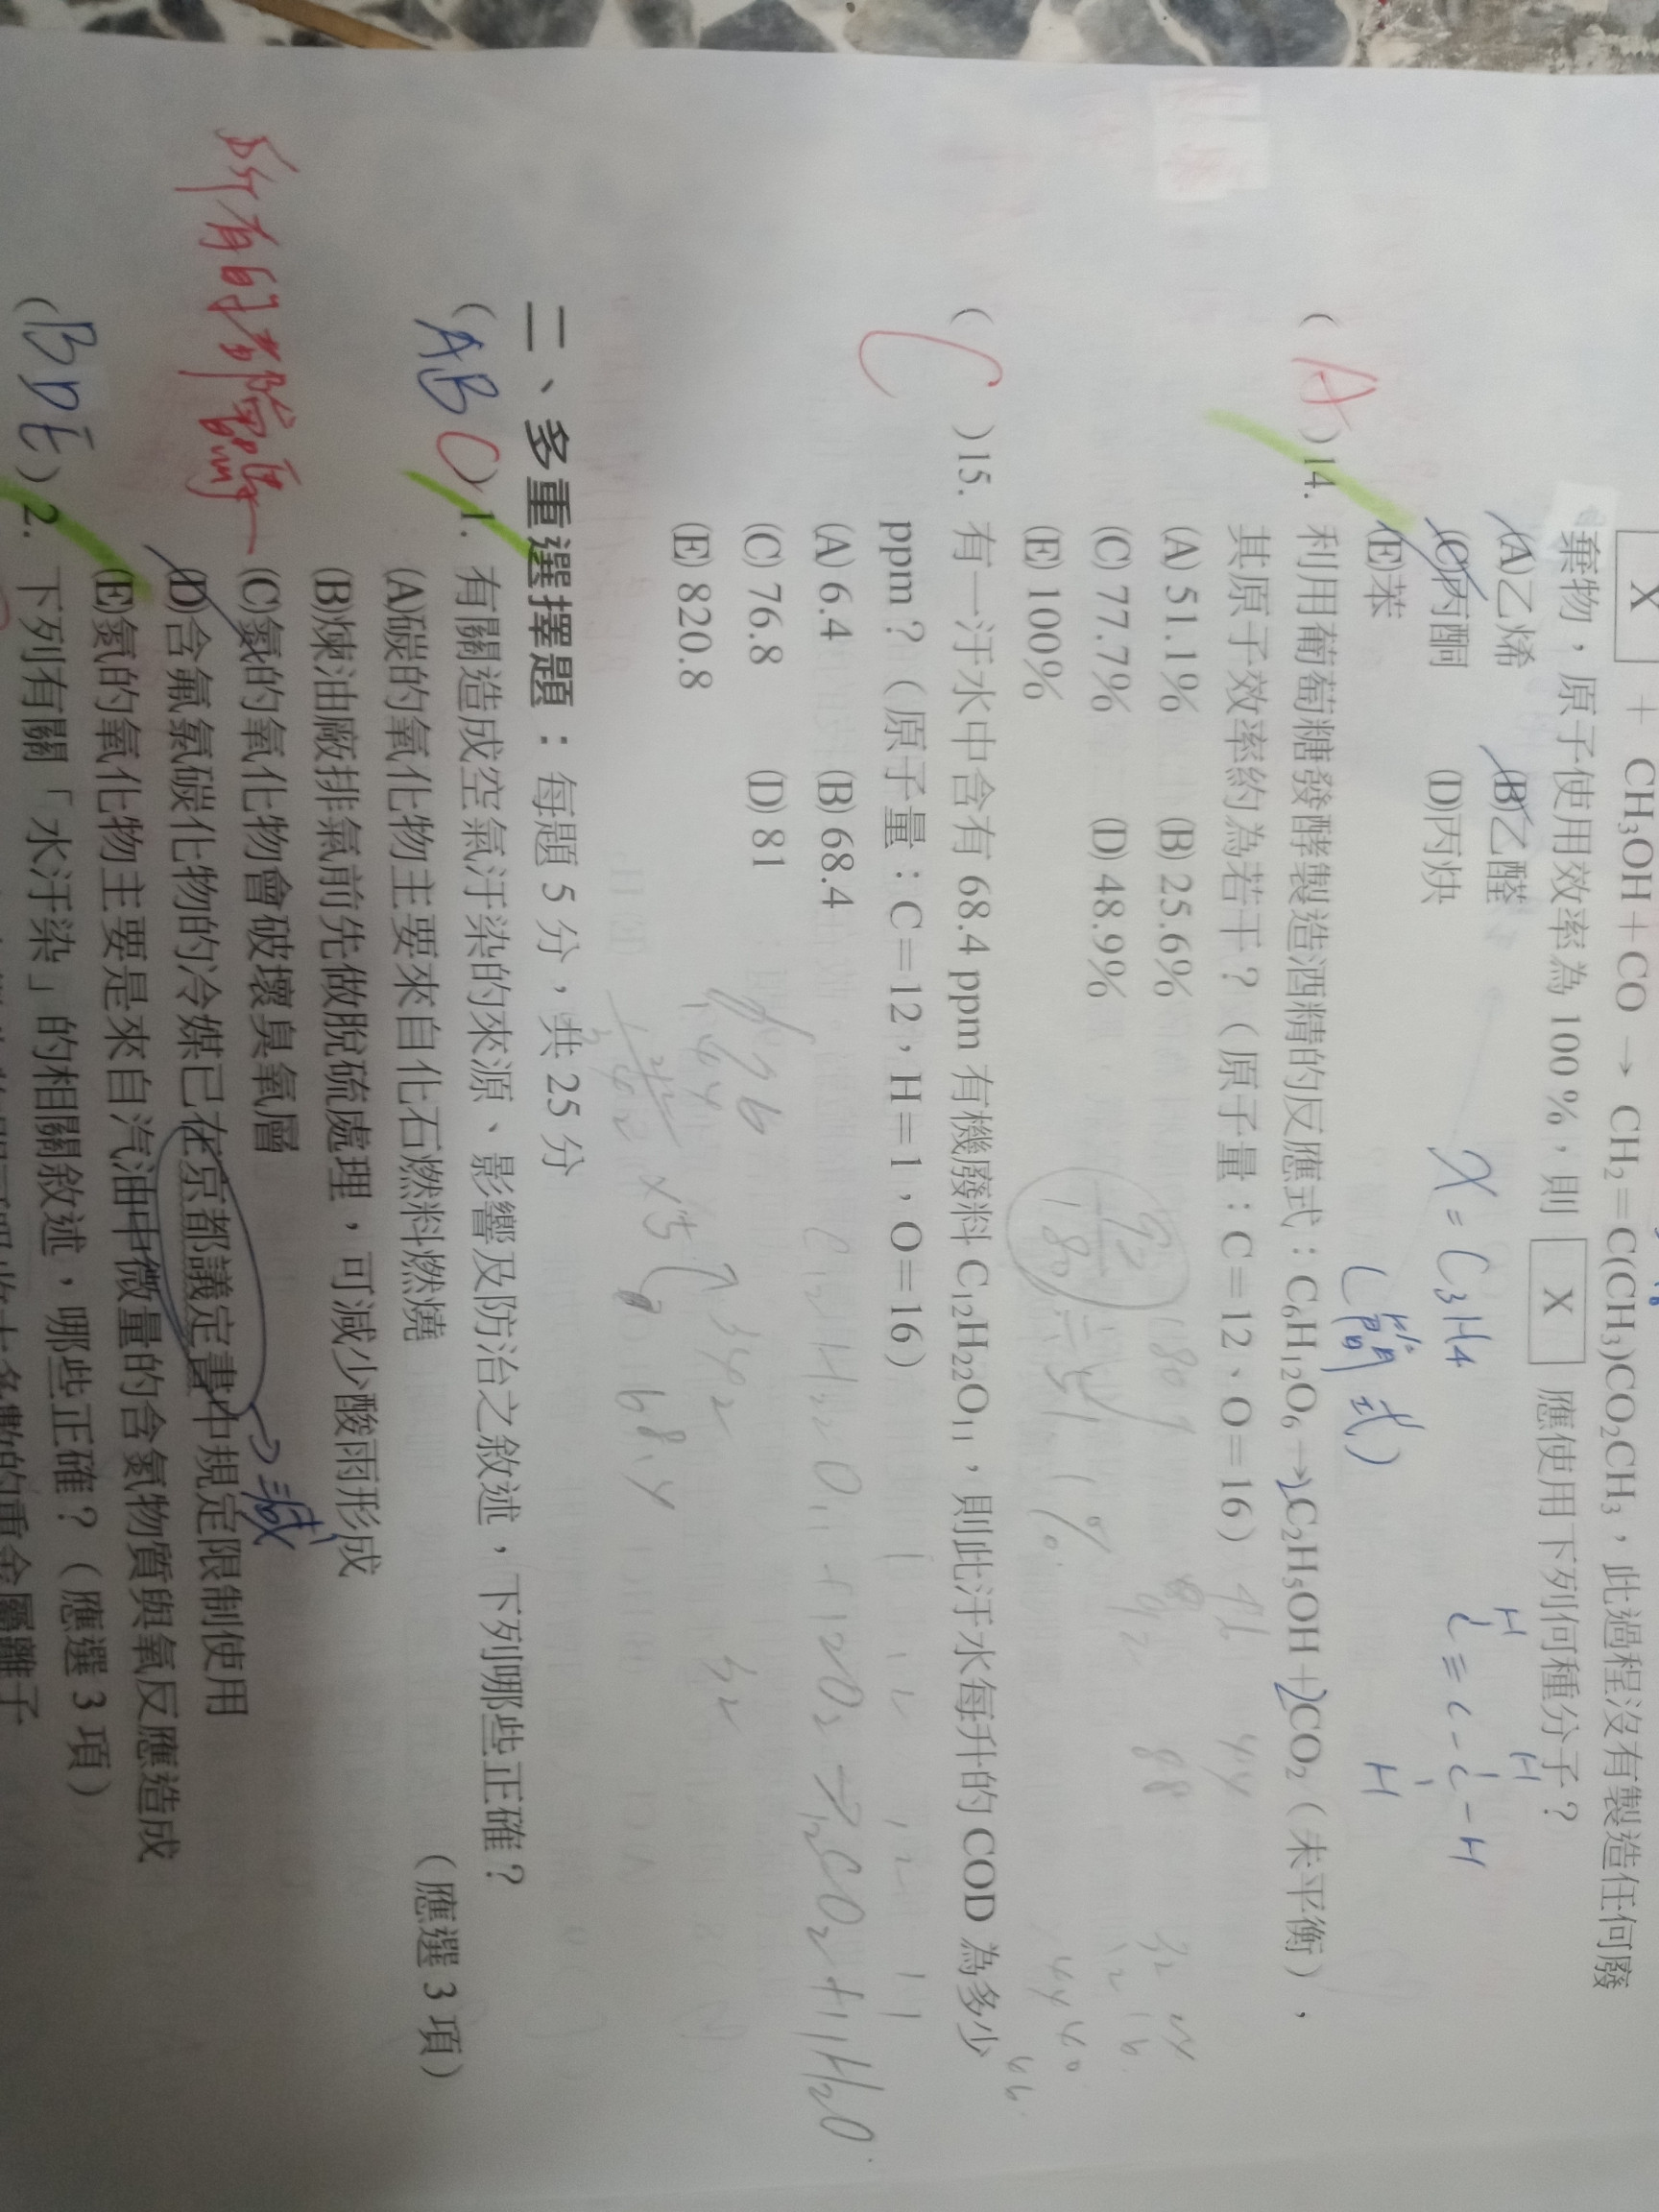 X + CH₃OH＋CO → CH₂＝C(CH₃)CO₂CH₃，此過程沒有製造任何廢
棄物，原子使用效率為 100 %，則 X 應使用下列何種分子？
(A)乙烯 (B)乙醛
(C)丙酮 (D)丙炔
(E)苯
X = C₃H₄
(簡式)
H H
C ≡ C - C - H
H
( A )14. 利用葡萄糖發酵製造酒精的反應式：C₆H₁₂O₆ → 2C₂H₅OH＋2CO₂（未平衡），
其原子效率約為若干？（原子量：C＝12、O＝16）
(A) 51.1% (B) 25.6%
(C) 77.7% (D) 48.9%
(E) 100%
46 44
92 88
92
180
( C )15. 有一汙水中含有 68.4 ppm 有機廢料 C₁₂H₂₂O₁₁，則此汙水每升的 COD 為多少
ppm？（原子量：C＝12，H＝1，O＝16）
(A) 6.4 (B) 68.4
(C) 76.8 (D) 81
(E) 820.8
C₁₂H₂₂O₁₁ + 12O₂ → 12CO₂ + 11H₂O
342 32
二、多重選擇題：每題 5 分，共 25 分
( ABC )1. 有關造成空氣汙染的來源、影響及防治之敘述，下列哪些正確？
（應選 3 項）
(A)碳的氧化物主要來自化石燃料燃燒
(B)煉油廠排氣前先做脫硫處理，可減少酸雨形成
(C)氮的氧化物會破壞臭氧層
(D)含氟氯碳化物的冷媒已在京都議定書中規定限制使用
→減
(E)氮的氧化物主要是來自汽油中微量的含氮物質與氧反應造成
所有的都
( BDE )2. 下列有關「水汙染」的相關敘述，哪些正確？（應選 3 項）